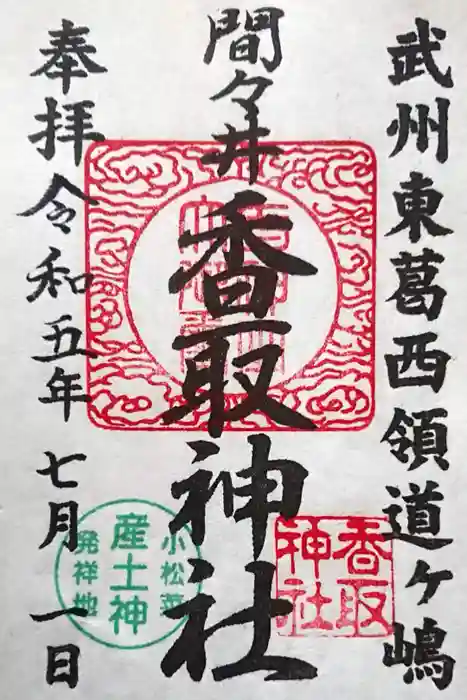 武州東葛西領道ヶ嶋
間々井
香取神社
奉拝令和五年七月一日
香取
神社
小松菜
産土神
発祥地